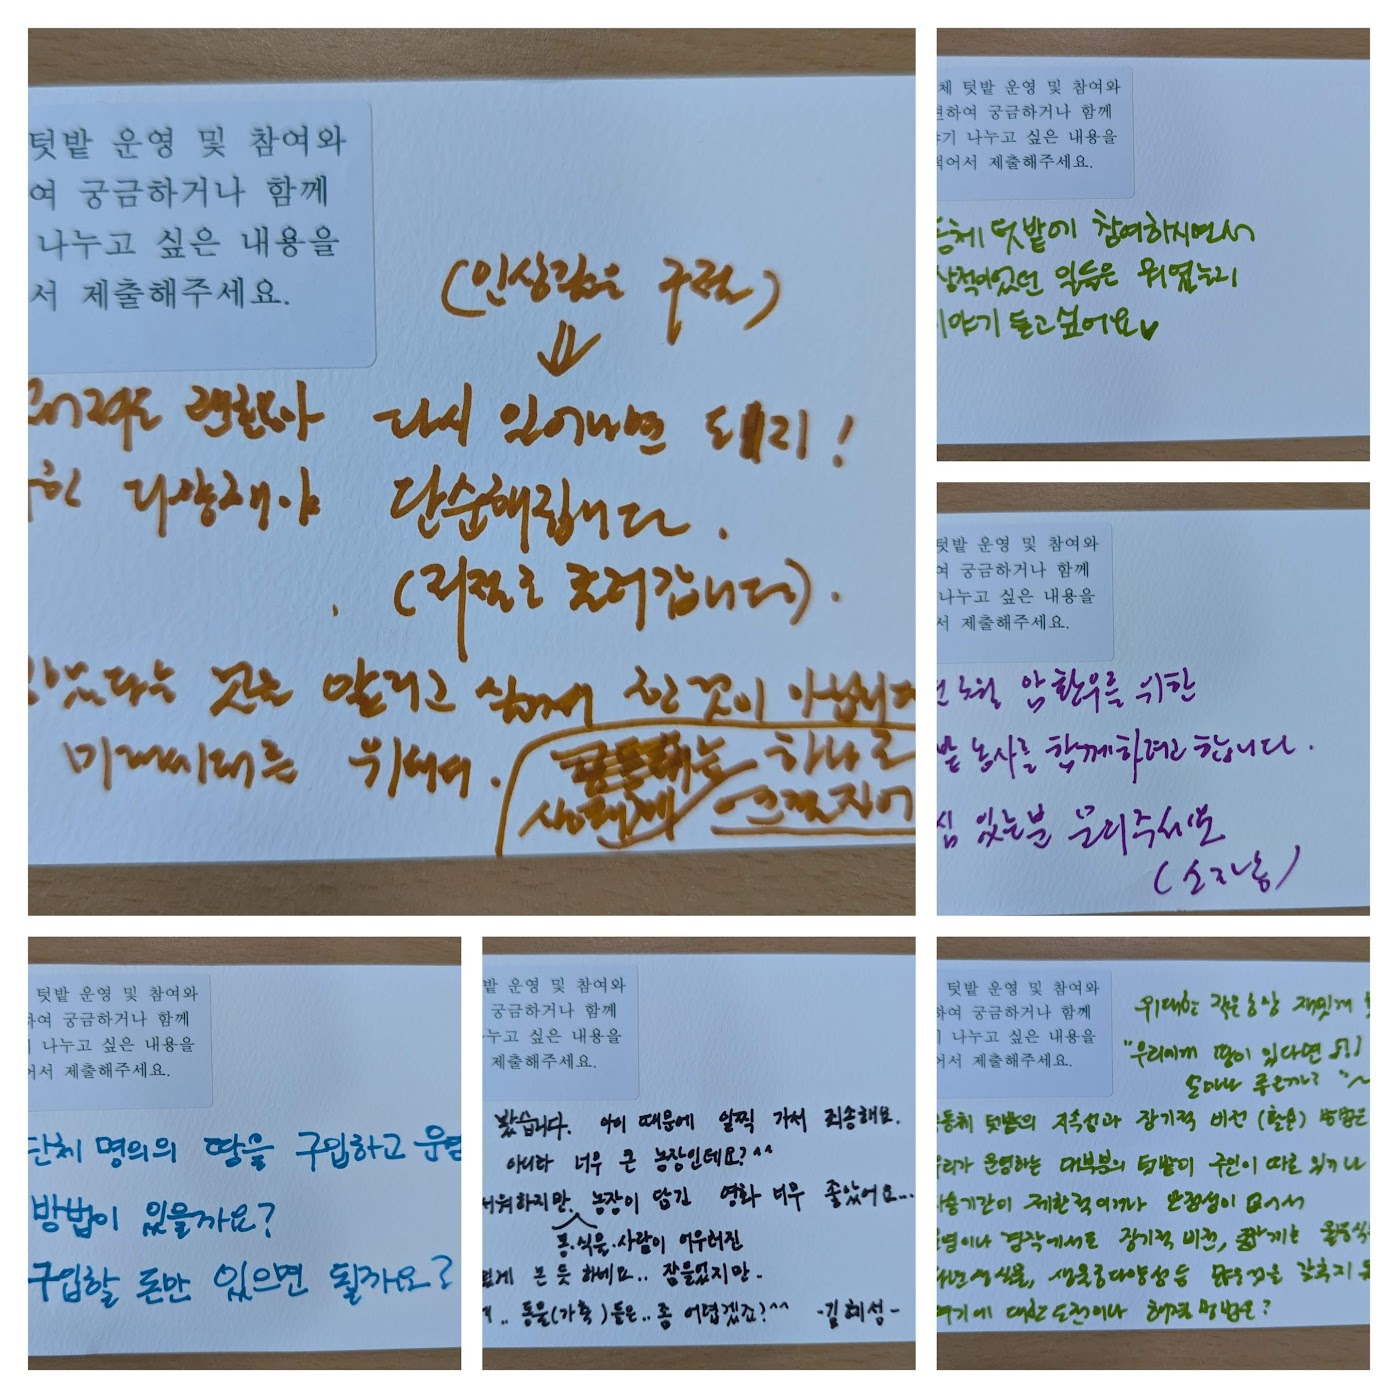 텃밭 운영 및 참여와
여 궁금하거나 함께
나누고 싶은 내용을
서 제출해주세요.
(인상깊은 구절)
괜찮아 다시 일어나면 되지!
다양해야 단순해집니다.
(저절로 흘러갑니다).
것은 알리고 싶게 한 것이
미래세대를 위해서.
하나로
체 텃밭 운영 및 참여와
련하여 궁금하거나 함께
야기 나누고 싶은 내용을
적어서 제출해주세요.
동체 텃밭에 참여하시면서
상적이었던 일들은 뭐였는지
이야기 듣고싶어요♥
텃밭 운영 및 참여와
여 궁금하거나 함께
나누고 싶은 내용을
서 제출해주세요.
암 환우를 위한
밭 농사를 함께하려고 합니다.
심 있는분 문의주세요
텃밭 운영 및 참여와
하여 궁금하거나 함께
기 나누고 싶은 내용을
어서 제출해주세요.
단체 명의의 땅을 구입하고 운영
방법이 있을까요?
구입할 돈만 있으면 될까요?
밭 운영 및 참여와
궁금하거나 함께
누고 싶은 내용을
제출해주세요.
봤습니다. 아이 때문에 일찍 가서 죄송해요.
아니라 너무 큰 농장인데요?^^
농장이 담긴 영화 너무 좋았어요...
동.식물.사람이 어우러진
본 듯 하네요.. 잠들었지만.
.. 동물(가축)들은.. 좀 어렵겠죠?^^ -김희섬-
텃밭 운영 및 참여와
하여 궁금하거나 함께
나누고 싶은 내용을
어서 제출해주세요.
위대한 작은농장 재밌게
"우리에게 땅이 있다면
얼마나 좋은가? "~
공동체 텃밭의 지속성과 장기적 비전 (활용) 방법은
우리가 운영하는 대부분의 텃밭이 주인이 따로 있거나
사용기간이 제한적이거나 안정성이 없어서
운영이나 경작에서도 장기적 비전,
생물종다양성 등 갖추지
여기에 대한 도전이나 해결 방법은?